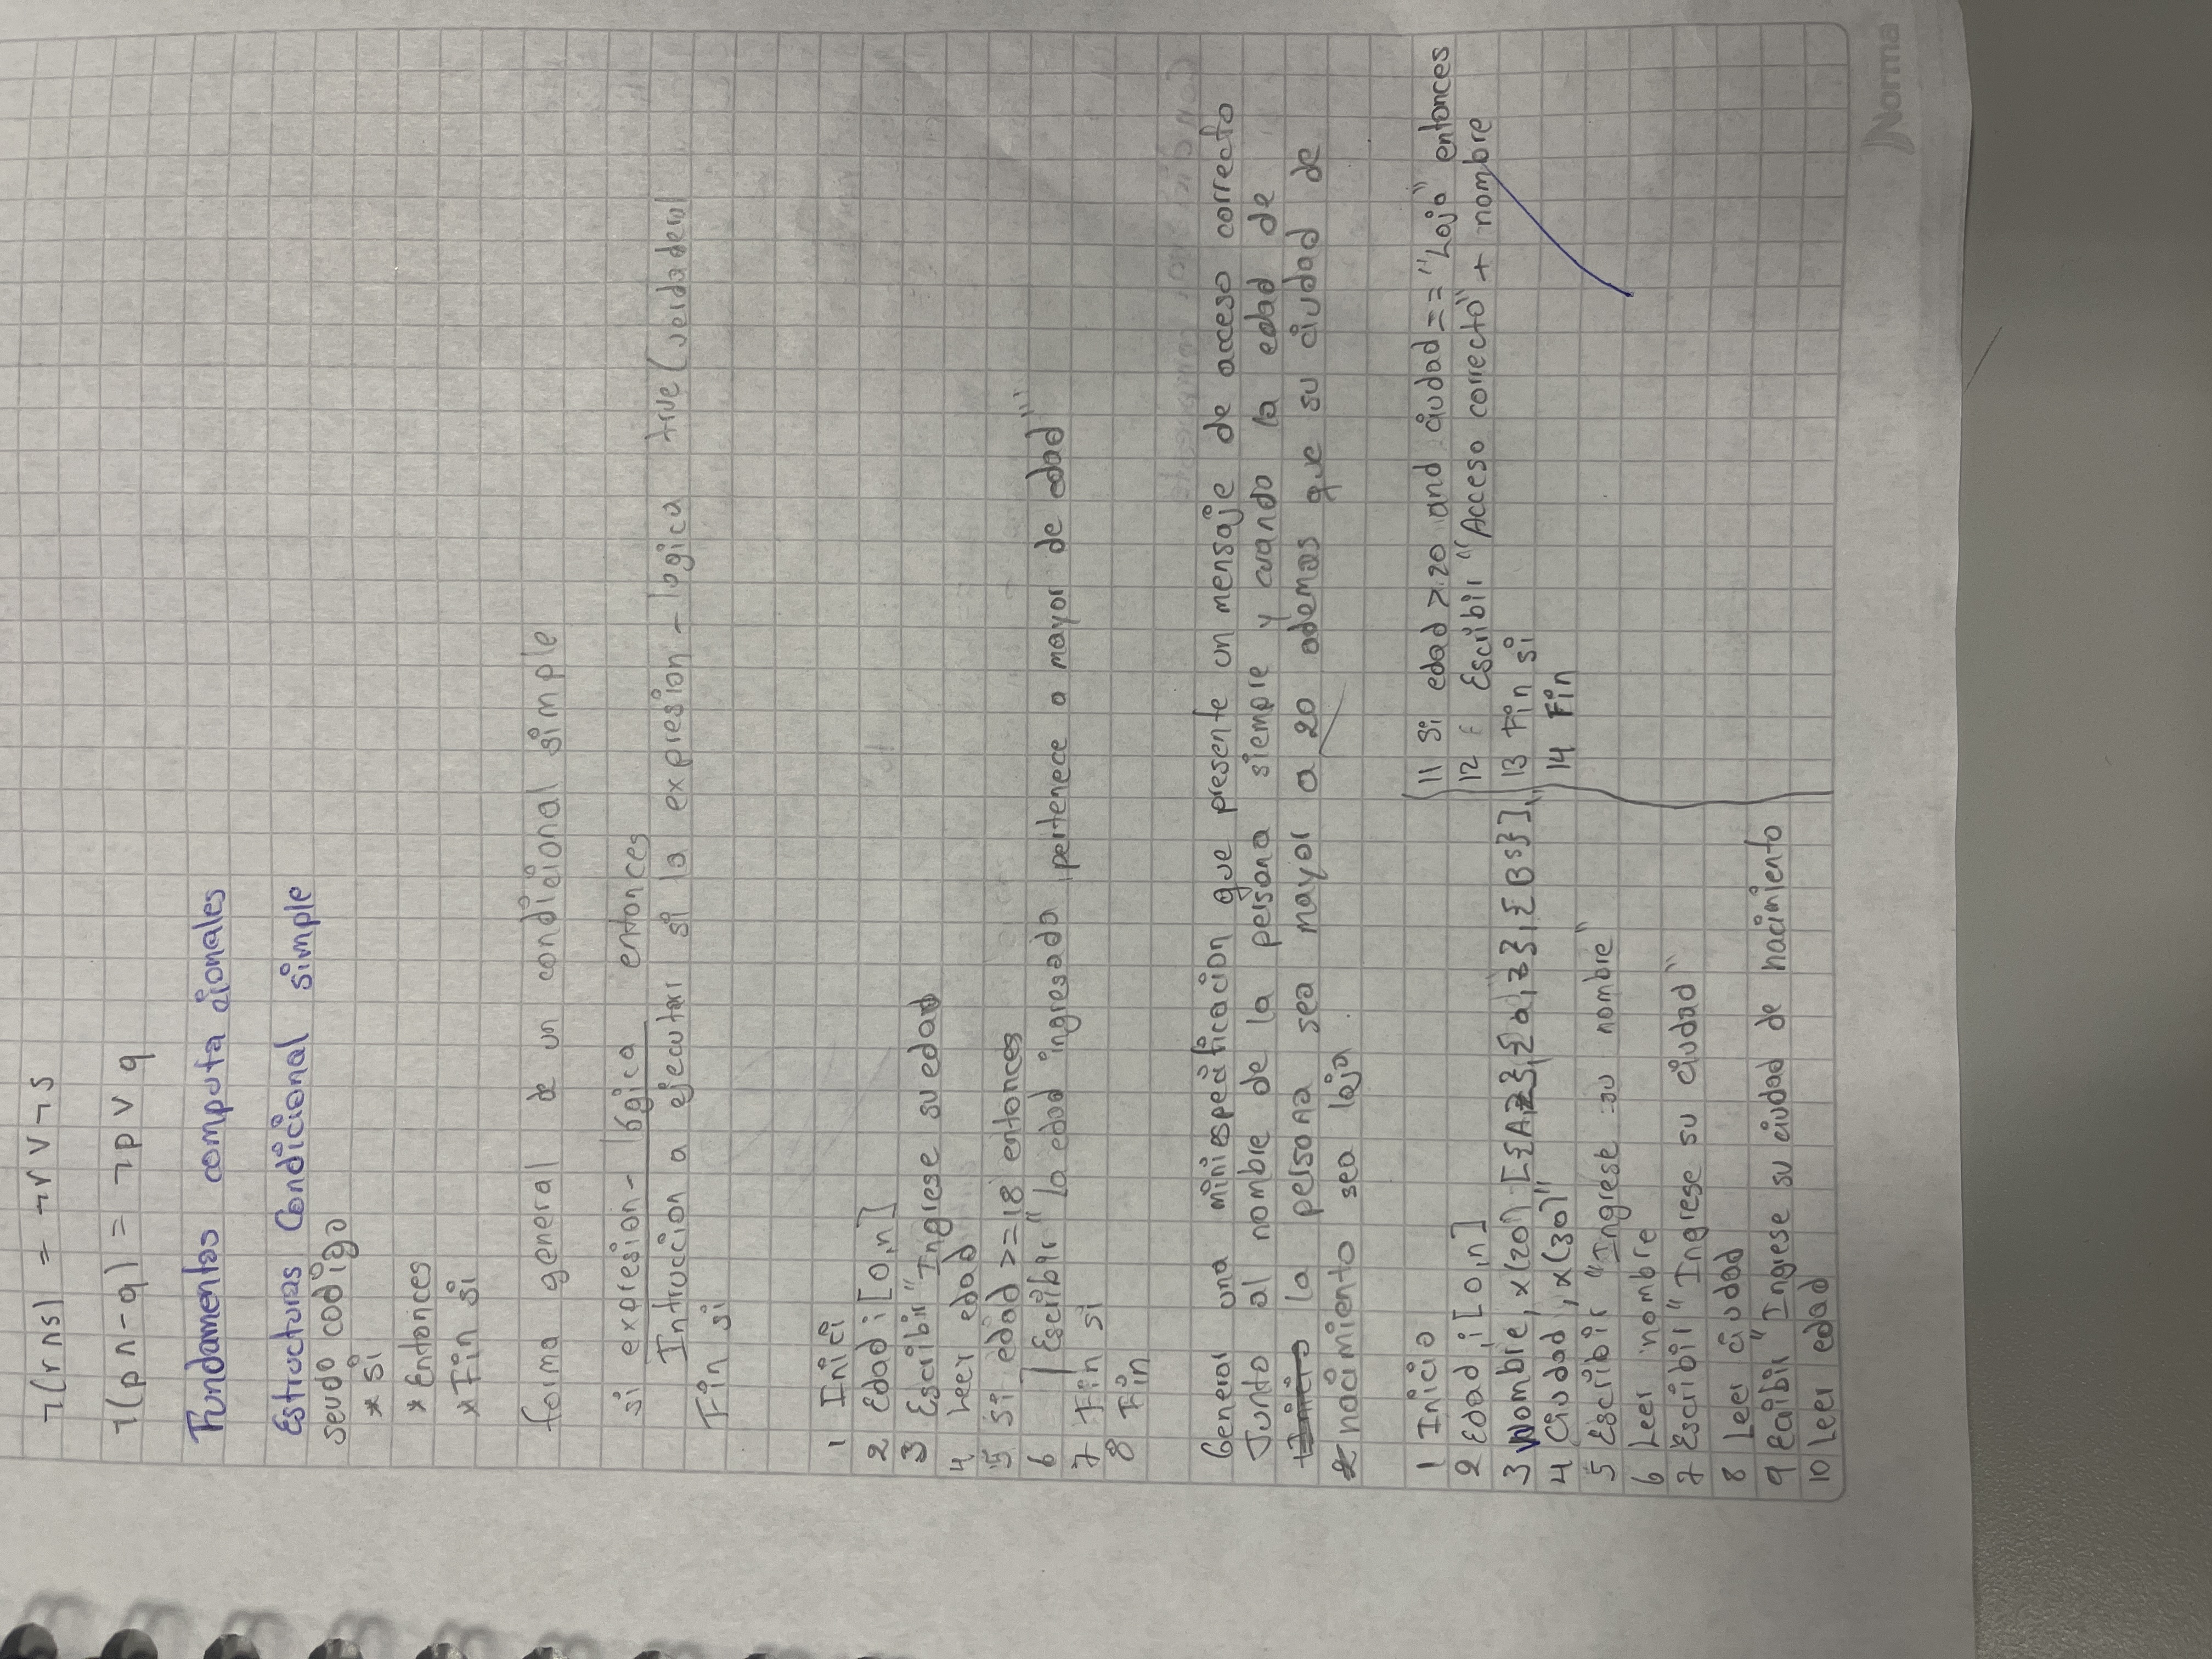 ¬(r∧s) = ¬r ∨ ¬s
¬(p∧-q) = ¬p ∨ q
Fundamentos computacionales
Estructuras Condicional simple
seudo codigo
* si
* Entonces
* Fin si
forma general de un condicional simple
si expresion-lógica entonces
Intruccion a ejecutar si la expresion-logica true (verdadero)
Fin si
1 Inici
2 Edad i [0,n]
3 Escribir "Ingrese su edad
4 Leer edad
5 Si edad >=18 entonces
6 Escribir "la edad ingresada pertenece a mayor de edad"
7 Fin si
8 Fin
Generar una miniespecificacion que presente un mensaje de acceso correcto
Junto al nombre de la persona siempre y cuando la edad de
la persona sea mayor a 20 ademas que su ciudad de
nacimiento sea loja.
1 Inicio
2 Edad, i [0,n]
3 Nombre, x(20) [{A,z},{a,z},{Bs}],
4 Ciudad, x(30)"
5 Escribir "Ingrese su nombre"
6 Leer nombre
7 Escribir "Ingrese su ciudad"
8 Leer ciudad
9 Ecribir "Ingrese su ciudad de nacimiento
10 Leer edad
11 Si edad >20 and ciudad == "Loja" entonces
12 Escribir "Acceso correcto" + nombre
13 Fin si
14 Fin
Norma